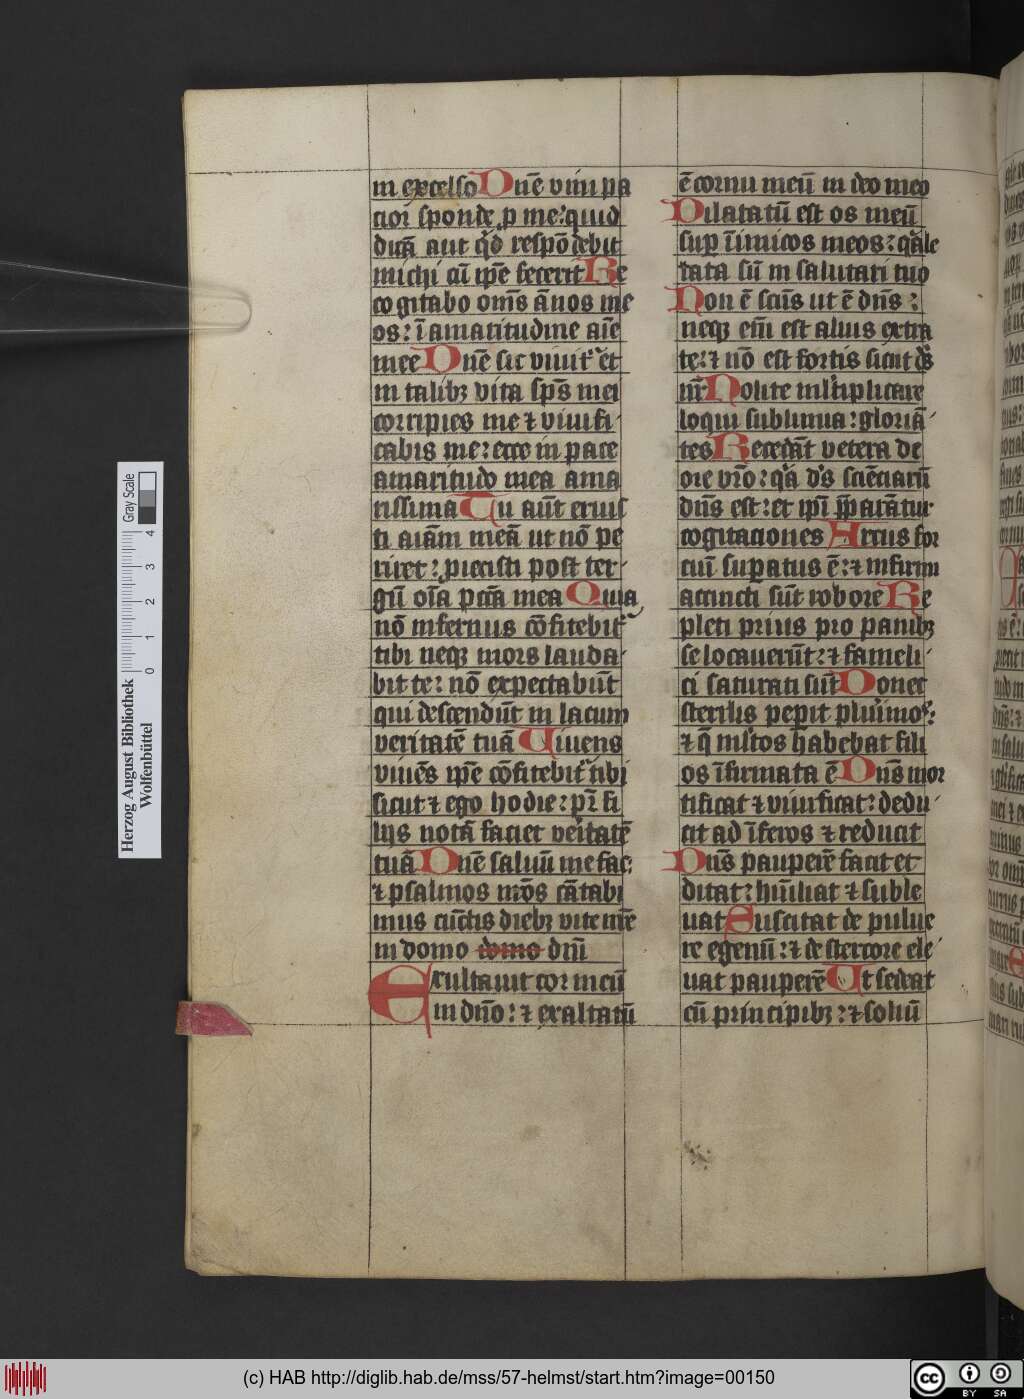 in excelso Dn̄e vim pa
cior sponde ꝓ me: quid
dicā aut qͥd respōdebit
michi cū ip̄e fecerit Re
cogitabo om̄s ānos me
os: ī amaritudine aīe
mee Dn̄e sic viuit᷑ et
in talibꝫ vita sp̄s mei
corripies me ⁊ viuifi
cabis me: ecce in pace
amaritudo mea ama
rissima Tu aūt eruis
ti aīam meā ut nō pe
riret: ꝓiecisti post ter
gū oīa pcc̄a mea Quia
nō infernus cōfitebit᷑
tibi neqꝫ mors lauda
bit te: nō expectabūt
qui descendūt in lacum
veritatē tuā Viuens
viuēs ip̄e cōfitebit᷑ tibi
sicut ⁊ ego hodie: pr̄ fi
lijs notā faciet veritatē
tuā Dn̄e saluū me fac:
⁊ psalmos nr̄os cātabi
mus cūctis diebꝫ vite nr̄e
in domo domo dnī
Exultauit cor meū
in dn̄o: ⁊ exaltatū
ē cornu meū in deo meo
Dilatatū est os meū
suꝑ īimicos meos: qͥa le
tata sū in salutari tuo
Non ē scūs ut ē dn̄s:
neqꝫ em̄ est alius extra
te: ⁊ nō est fortis sicut ds̄
nr̄ Nolite ml̄tiplicare
loqui sublimia: gloriā
tes Recedāt vetera de
ore vr̄o: qͥa ds̄ sciēciarū
dn̄s est: et ip̄i p̄parātur
cogitaciones Arcus for
ciū suꝑatus ē: ⁊ infirmi
accincti sūt robore Re
pleti prius pro panibꝫ
se locauerūt: ⁊ fameli
ci saturati sūt Donec
sterilis peꝑit plurimos:
⁊ q̄ ml̄tos habebat fili
os īfirmata ē Dn̄s mor
tificat ⁊ viuificat: dedu
cit ad īferos ⁊ reducit
Dn̄s pauperē facit et
ditat: hūiliat ⁊ suble
uat Suscitat de pulue
re egenū: ⁊ de stercore ele
uat pauperē Ut sedeat
cū principibꝫ: ⁊ soliū
Herzog August Bibliothek
Wolfenbüttel
0 1 2 3 4
Gray Scale
(c) HAB http://diglib.hab.de/mss/57-helmst/start.htm?image=00150
cc BY SA